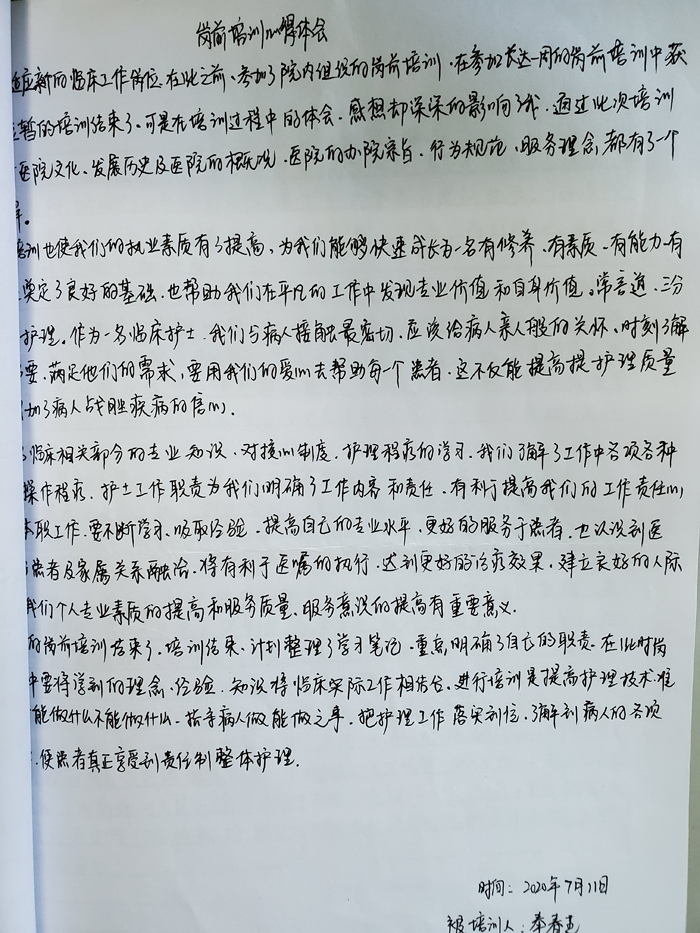 岗前培训心得体会
适应新的临床工作岗位.在此之前、参加了院内组织的岗前培训.在参加长达一周的岗前培训中获
短暂的培训结束了.可是在培训过程中的体会.感想却深深的影响了我.通过此次培训
医院文化、发展历史及医院的概况.医院的办院宗旨、行为规范、服务理念都有了一个
解。
培训也使我们的执业素质有了提高、为我们能够快速成长为一名有修养.有素质.有能力.有
奠定了良好的基础.也帮助我们在平凡的工作中发现专业价值和自身价值。常言道.三分
护理。作为一名临床护士.我们与病人接触最密切.应该给病人亲人般的关怀、时刻了解
要.满足他们的需求.要用我们的爱心去帮助每一个患者.这不仅能提高提护理质量
加了病人战胜疾病的信心.
临床相关部分的专业知识.对接心制度.护理程序的学习.我们了解了工作中各项各种
操作程序.护士工作职责为我们明确了工作内容和责任.有利于提高我们的工作责任心
本职工作.要不断学习、吸取经验.提高自己的专业水平.更好的服务于患者.也认识到医
患者及家属关系融洽.将有利于医嘱的执行.达到更好的治疗效果.建立良好的人际
我们个人专业素质的提高和服务质量、服务意识的提高有重要意义.
的岗前培训结束了.培训结束、计划整理了学习笔记.重点明确了自己的职责.在此时岗
中要将学到的理念、经验.知识将临床实际工作相结合、进行培训是提高护理技术.准
能做什么不能做什么.指导病人做能做之事.把护理工作落实到位.了解到病人的各项
.使患者真正享受到责任制整体护理.
时间:2020年7月11日
被培训人:秦春